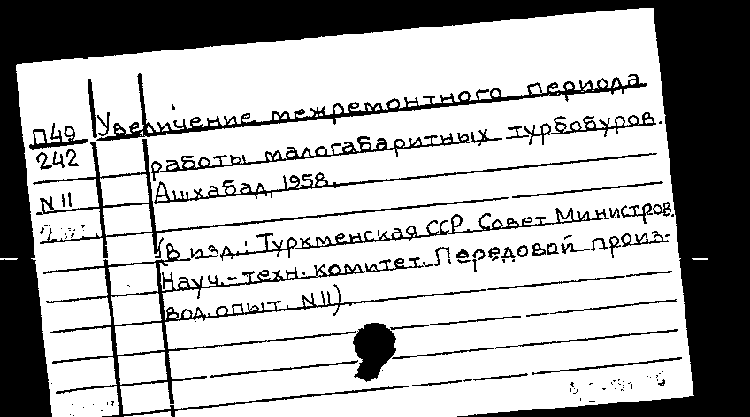 Увеличение межремонтного периода
П49
242
работы малогабаритных турбобуров.
Ашхабад, 1958.
N 11
(В изд.: Туркменская ССР. Совет Министров.
Науч.-техн. комитет. Передовой произ-
вод. опыт. N 11).